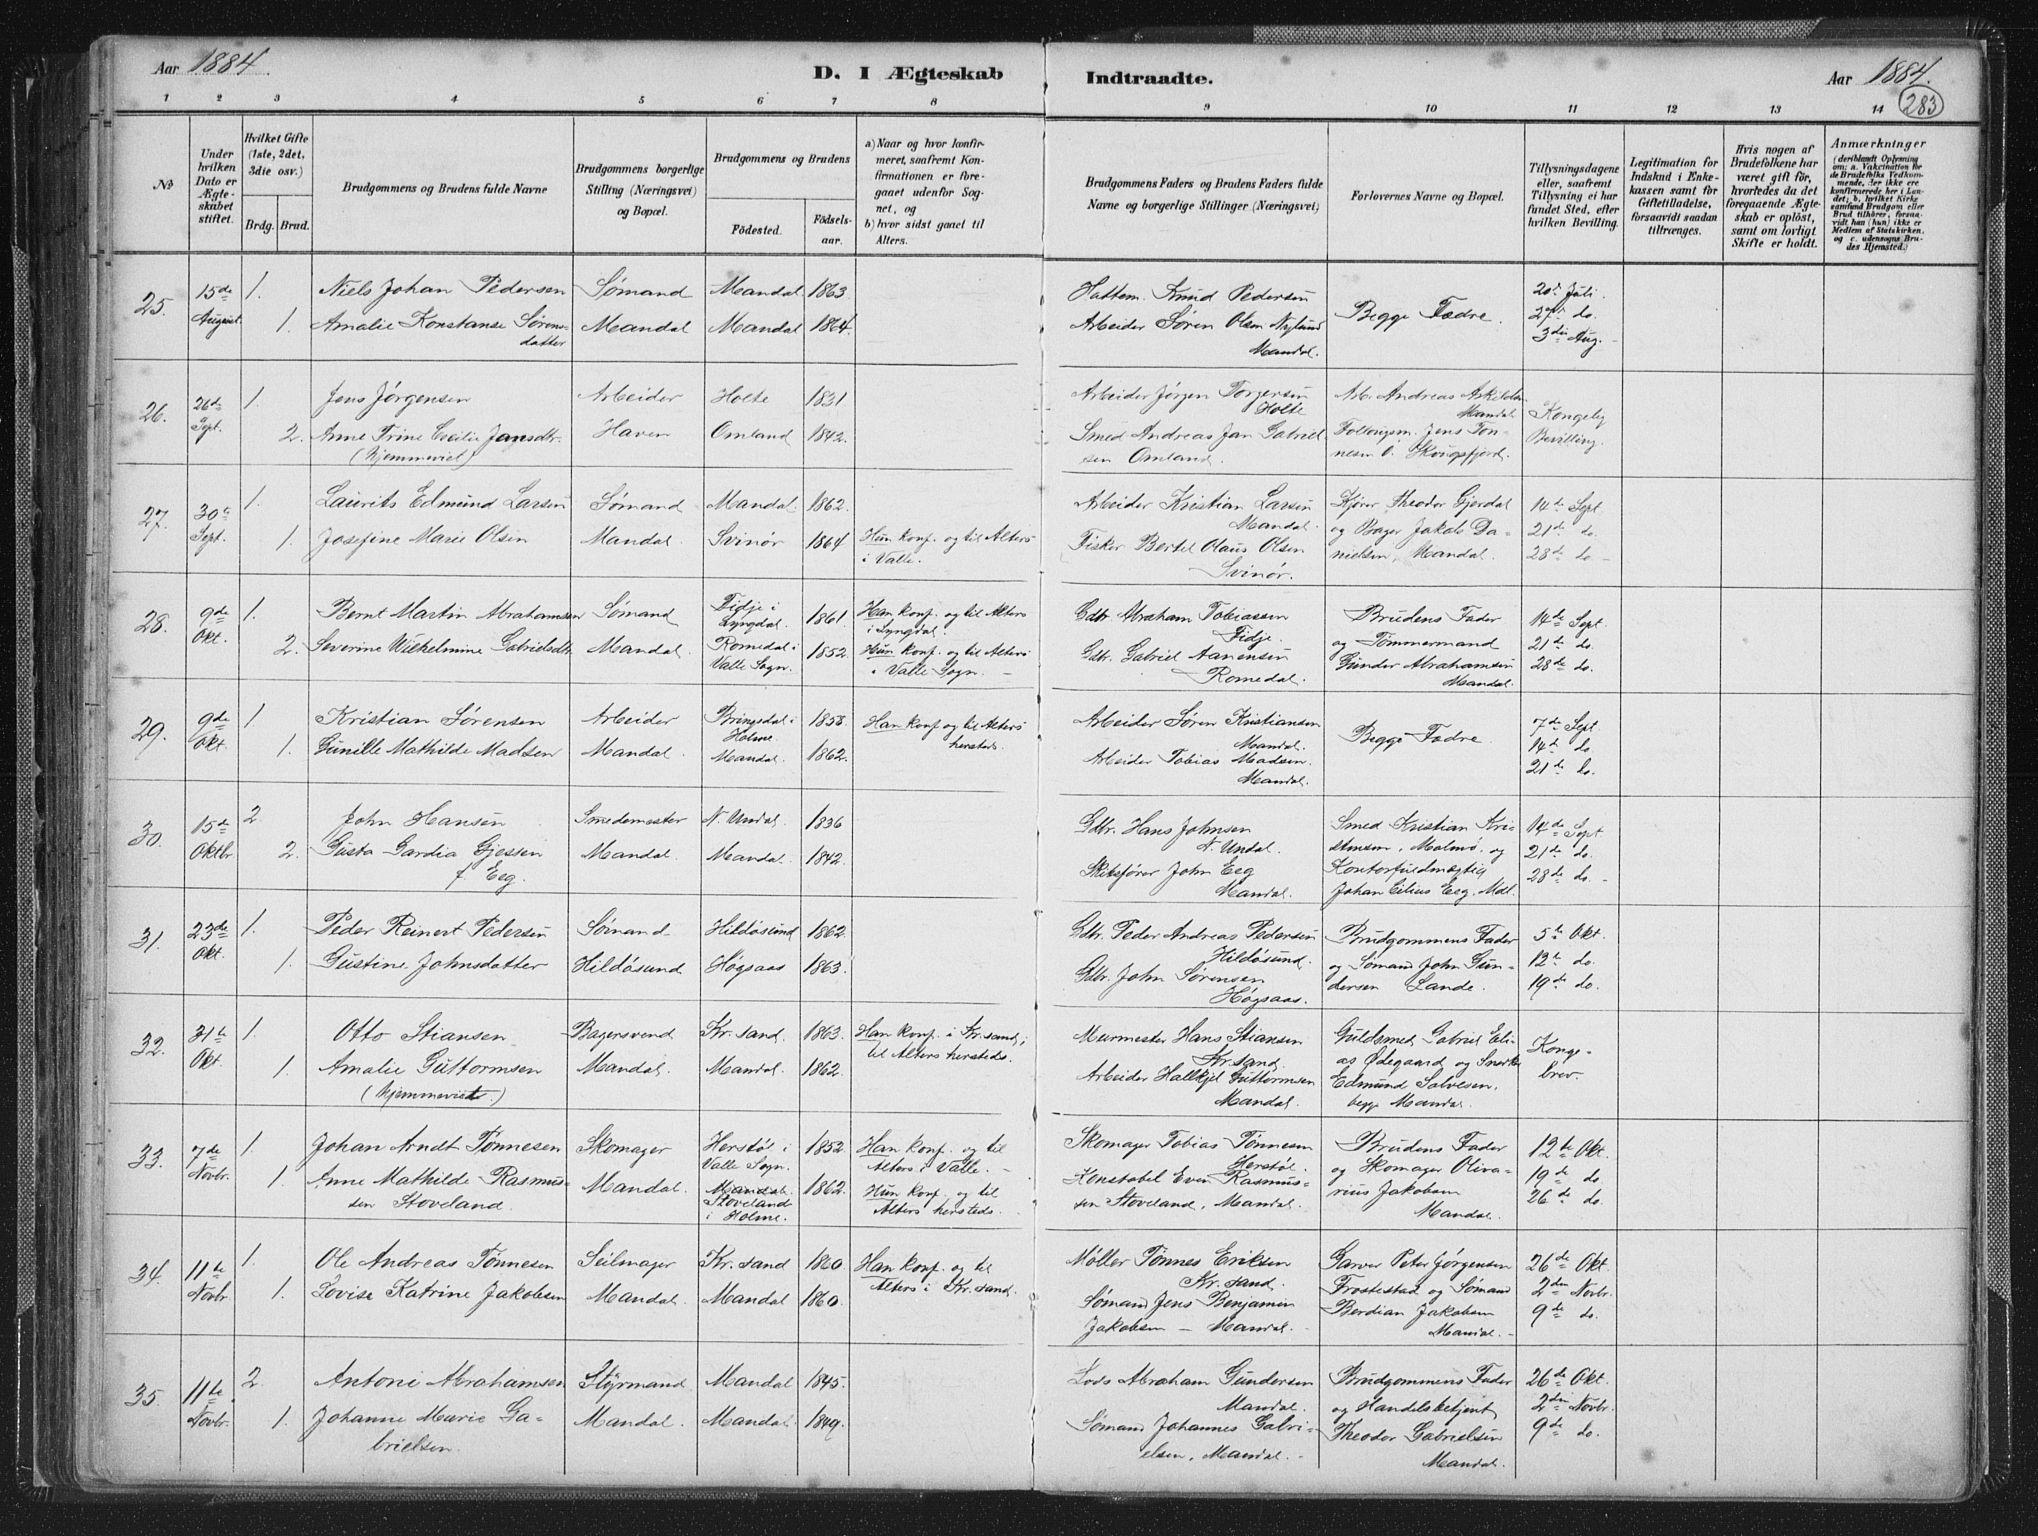 Aar 1884.
D. I Ægteskab
Indtraadte.
Aar 1884.
283
1 2 3 4 5 6 7 8 9 10 11 12 13 14
№
Under hvilken Dato er Ægteskabet stiftet.
Hvilket Gifte (1ste, 2det, 3die osv.)
Brdg. Brud.
Brudgommens og Brudens fulde Navne
Brudgommens borgerlige Stilling (Næringsvei) og Bopæl.
Brudgommens og Brudens
Födested.
Födselsaar.
a) Naar og hvor konfirmeret, saafremt Konfirmationen er foregaaet udenfor Sognet, og
b) hvor sidst gaaet til Alters.
Brudgommens Faders og Brudens Faders fulde Navne og borgerlige Stillinger (Næringsvei)
Forlovernes Navne og Bopæl.
Tillysningsdagene eller, saafremt Tillysning ei har fundet Sted, efter hvilken Bevilling.
Legitimation for Indskud i Enkekassen samt for Giftetilladelse, forsaavidt saadan tiltrænges.
Hvis nogen af Brudefolkene har været gift för, hvortedes da det foregaaende Ægteskab er oplöst, samt om lovligt Skifte er holdt.
Anmærkninger
(deriblandt Oplysning om: a. Vakcination for de Brudefolks Vedkommende, der ikke ere konfirmerede her i Landet; b. hvilket Kirkesamfund Brudgom eller Brud tilhörer, forsaavidt han (hun) ikke er Medlem af Statskirken, og c. udensogns Brudes Hjemsted.)
25. 15de August 1. Niels Johan Pedersen Sømand Mandal 1863. Hattem. Knud Pedersen Begge Fædre. 20de Juli.
1. Amalie Konstanse Sørens- Mandal Mandal 1864. Arbeider Søren Olsen Nylund 27de do.
datter Mandal. 3die Aug.
26. 26de Sept. 1. Jens Jørgensen Arbeider Holte 1831 Arbeider Jørgen Torgersen Arb. Andreas Askildsen
Holte Mandal Kongelig
2. Anne Trine Cecilie Jansdtr. Haven Omland 1842. Smed Andreas Jan Gabriel- Jens Tøn- Bevilling.
(Hjemmeviet) sen Omland. nesen Skougsfjord.
27. 30te Sept. 1. Laurits Edmund Larsen Sømand Mandal. 1862. Arbeider Kristian Larsen Theodor Gjerdal 14de Sept.
Mandal. og Bager Jakob Da- 21de do.
1. Josefine Marie Olsen Mandal. Svinør 1864 Hun konf. og til Alters Fisker Bertel Olaus Olsen nielsen, Mandal. 28de do.
i Valle. Svinør.
28. 9de Okt. 1. Bernt Martin Abrahamsen Sømand Fidje i Lyngdal. 1861. Han konf. og til Alters i Lyngdal. Gdbr. Abraham Tobiassen Brudens Fader 14de Sept.
Fidje. og Tømmermand 21de do
2. Severine Wilhelmine Gabrielsdtr. Mandal. Romedal i Valle Sogn. 1852. Hun konf. og til Alters i Valle Sogn. Gdbr. Gabriel Aanensen Gunder Abrahamsen 28de do.
Romedal. Mandal.
29. 9de Okt. 1 Kristian Sørensen Arbeider Bringsdal i Holme. 1858. Han konf og til Alters hersteds. Arbeider Søren Kristiansen Begge Fædre. 7de Sept.
Mandal. 14de do.
1. Gunille Mathilde Madsen Mandal. Mandal. 1862. Arbeider Tobias Madsen 21de do.
Mandal.
30. 15de Oktbr. 2. John Hansen Smedemester N. Undal. 1836 Gdbr. Hans Johnsen Smed Kristian Kri- 14de Sept
N. Undal. stensen, Malmø, og 21de do.
2. Gusta Gardia Gjessen Mandal. Mandal. 1842. Skibsfører John Eeg Kontorfuldmægtig 28de do.
f. Eeg. Mandal. Johan Cilius Eeg, Mdl.
31. 23de Okt. 1. Peder Reinert Pedersen Sømand Hildøsund 1862. Gdbr. Peder Andreas Pedersen Brudgommens Fader 5te Okt.
Hildøsund. og Sømand John Gun- 12te do.
1. Gustine Johnsdatter Hildøsund Høgsaas 1863. Gdbr. John Sørensen dersen Lande. 19de do.
Høgsaas.
32. 31te Okt. 1. Otto Stiansen Bagersvend Kr. sand. 1863. Han konf. i Kr. sand, Murmester Hans Stiansen Guldsmed Gabriel Eli-
til Alters hersteds. Kr. sand. as Ødegaard og Snekker Konge-
1. Amalie Guttormsen Mandal. Mandal. 1862. Arbeider Hallkjel Guttormsen Edmund Salvesen, brev.
(Hjemmeviet.) Mandal. begge Mandal.
33. 7de Novbr. 1. Johan Arndt Tønnesen Skomager Herstøl i Valle Sogn. 1852. Han konf. og til Alters i Valle. Skomager Tobias Tønnesen Brudens Fader 12te Okt.
Herstøl. og Skomager Oliva- 19de do
1. Anne Mathilde Rasmus- Mandal. Mandal. Stoveland i Holme. 1862. Hun konf. og til Alters hersteds. Konstabel Even Rasmus- rius Jakobsen 26de do.
sen Stoveland. sen Stoveland, Mandal. Mandal.
34. 11te Novbr. 1. Ole Andreas Tønnesen Seilmager Kr. sand 1860. Han konf. og til Alters i Kr. sand. Møller Tønnes Eriksen Garver Peter Jørgensen 26de Okt.
Kr. sand. Frostestad og Sømand 2den Novbr.
1. Lovise Katrine Jakobsen Mandal. Mandal 1860. Sømand Jens Benjamin Berdian Jakobsen 9de do.
Jakobsen – Mandal. Mandal.
35. 11te Novbr. 2. Antoni Abrahamsen Styrmand Mandal 1845. Lods Abraham Gundersen Brudgommens Fader 26de Okt.
Mandal. og Handelsbetjent 2den Novbr.
1. Johanne Marie Ga- Mandal. Mandal. 1849. Sømand Johannes Gabri- Theodor Gabrielsen 9de do.
brielsen. elsen, Mandal. Mandal.